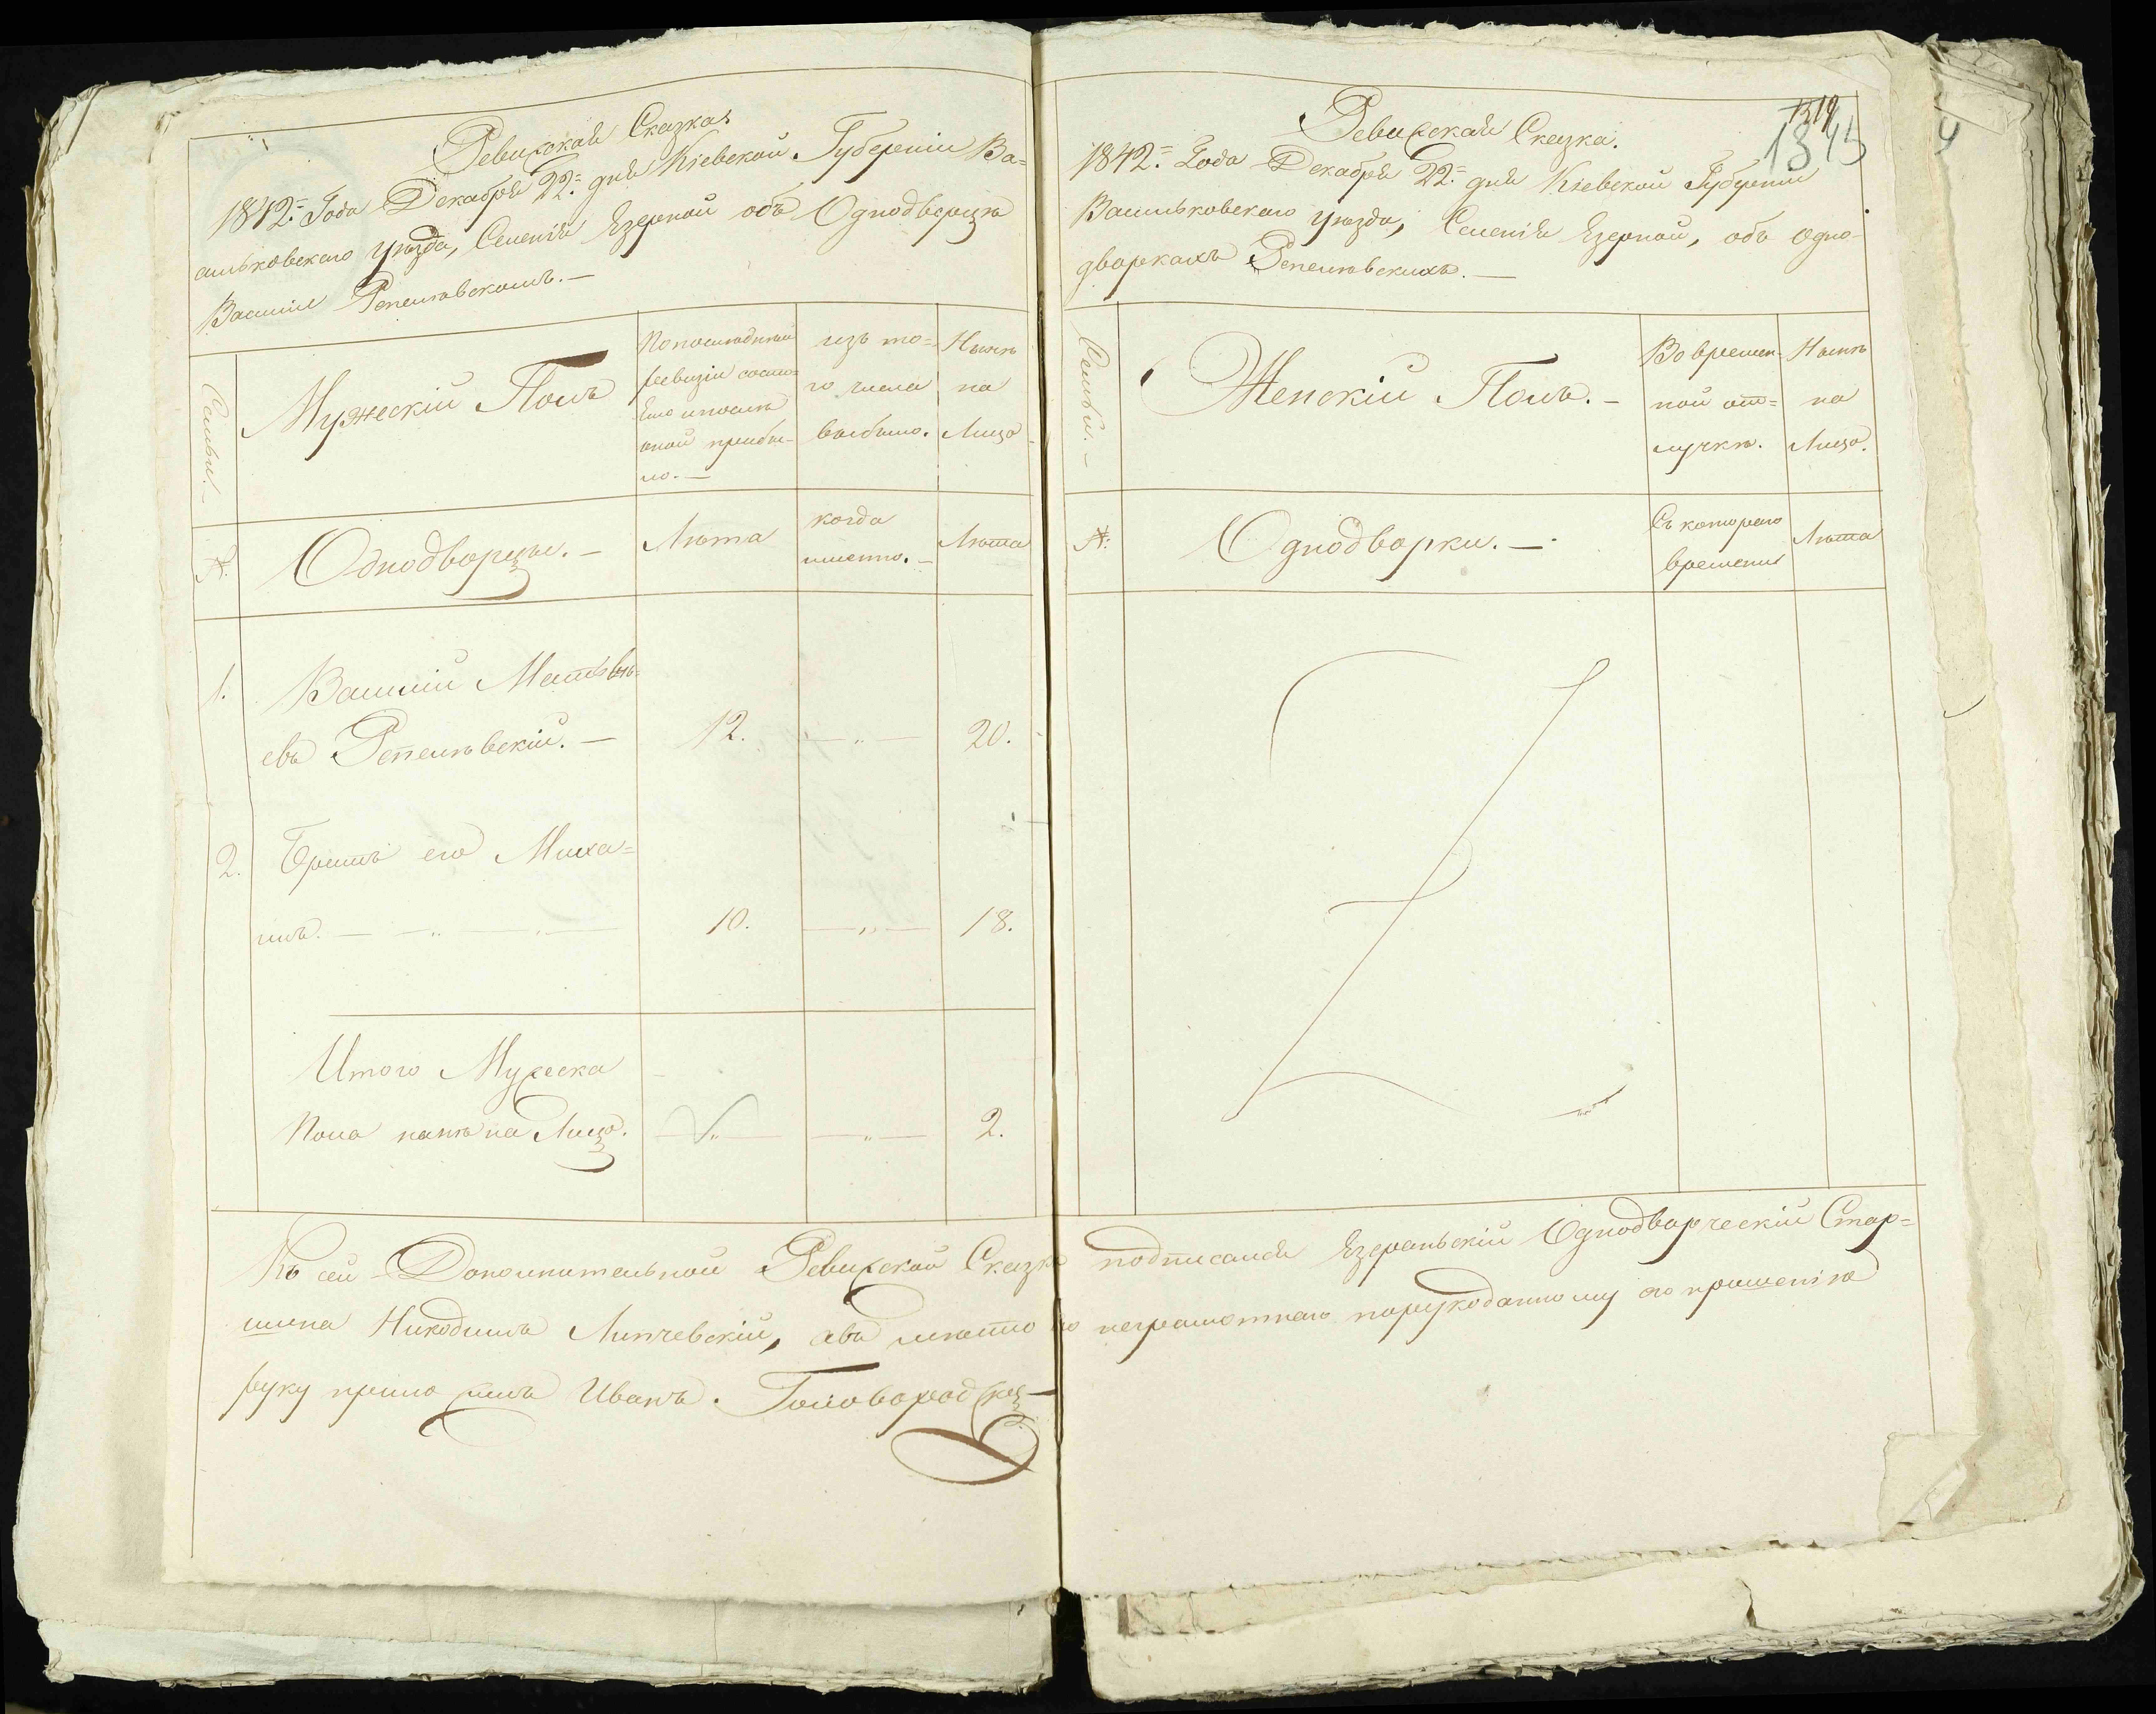 Ревизская Сказка.
1842. Года Декабря 22. дня Кіевской Губерніи Ва=
сильковскаго уезда, Селенія Езерной объ Однодворце
Василіе Репелевскомъ. —
Семьи. —
Мужескій Полъ
По последней
ревизіи состо=
яло и после
оной прибы-
ло. —
изъ то=
го числа
выбыло.
Ныне
на
Лицо
№
Однодворцы. —
Лета
когда
именно. —
Лета
1.
Василій Матвѣ=
евъ Репелевскій. —
12.
— „ —
20.
2.
Братъ его Миха=
илъ. — — „ — „ —
10.
— „ —
18.
Итого Мужеска
Пола ныне на Лицо.
— „ —
— „ —
2.
1319
1345
Ревизская Сказка.
1842. Года Декабря 22. дня Кіевской Губерніи
Васильковскаго уезда, Селенія Езерной, объ Одно-
дворкахъ Репелевскихъ. —
Семьи. —
Женскій Полъ. —
Во времен-
ной от=
лучке.
Ныне
на
Лицо.
№
Однодворки. —
Съ котораго
времени
Лета
Къ сей Дополнительной Ревизской Сказке подписался Езерянскій Однодворческій Стар=
шина Никодимъ Липчевскій, а въ место его неграмотнаго по рукоданному его прошенію
руку приложилъ Иванъ.